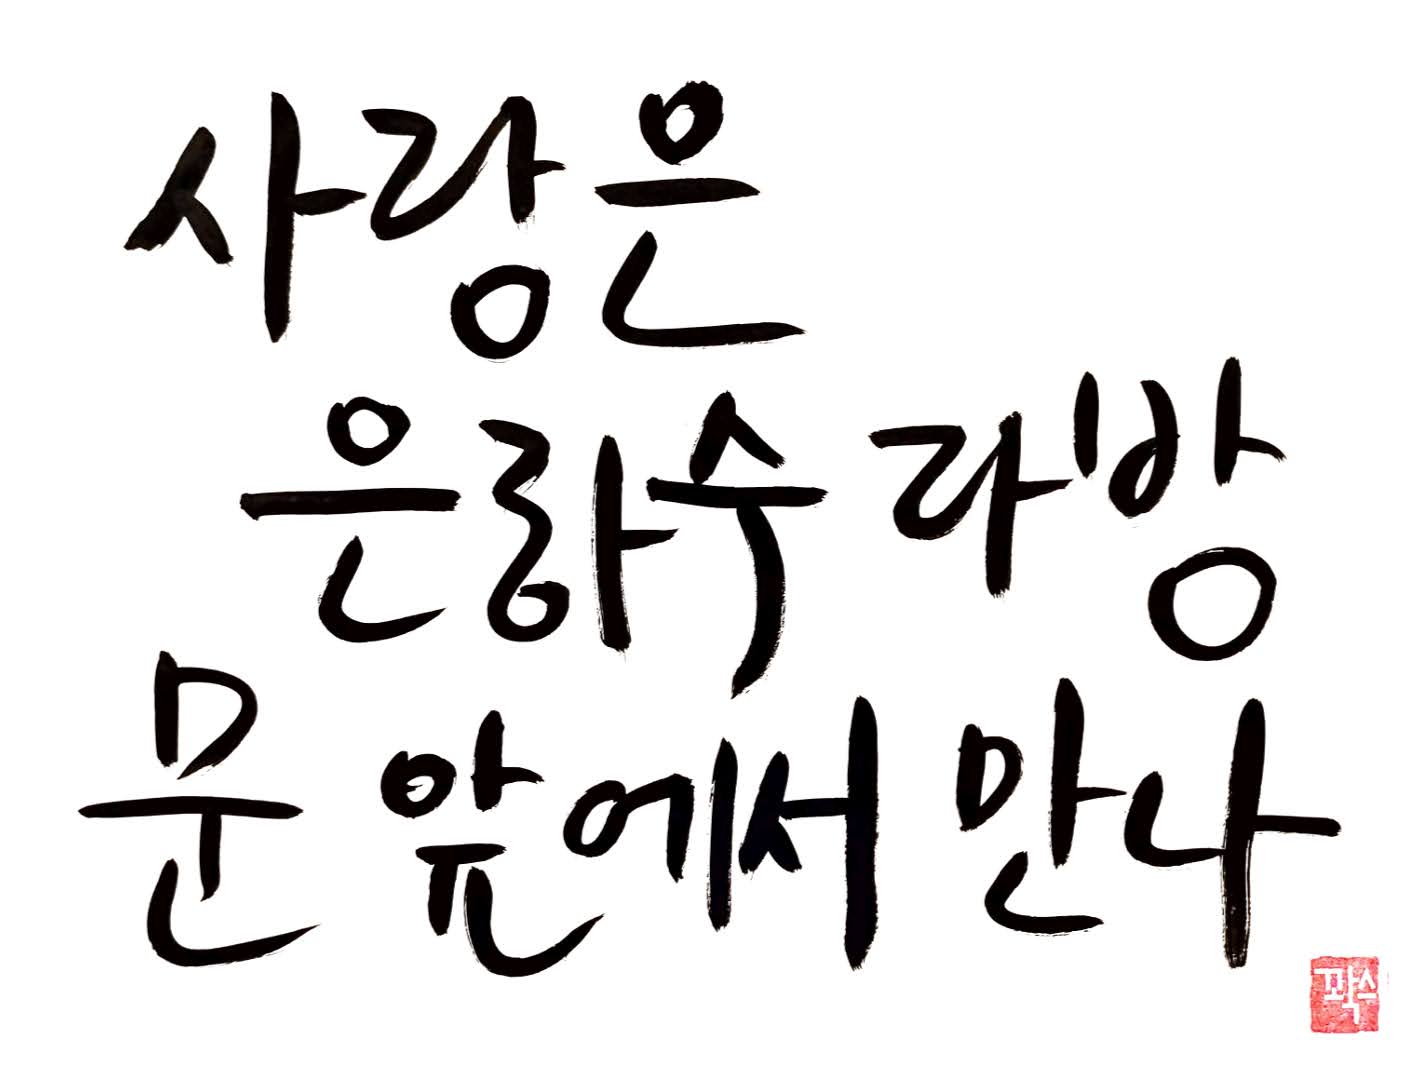 사랑은
은하수 다방
문 앞에서 만나
꽉스